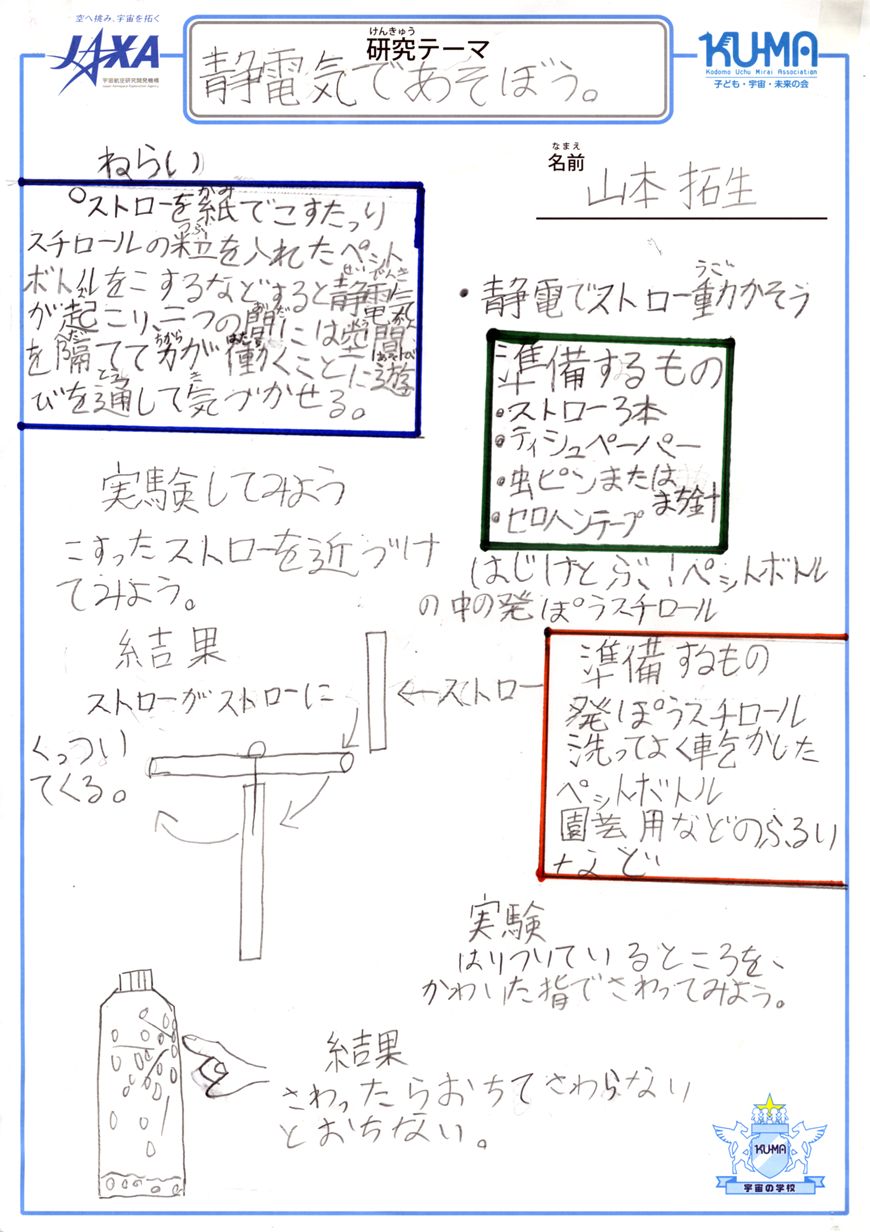 空へ挑み、宇宙を拓く
JAXA
宇宙航空研究開発機構
Japan Aerospace Exploration Agency
けんきゅう
研究テーマ
静電気であそぼう。
KU-MA
Kodomo Uchu Mirai Association
子ども・宇宙・未来の会
なまえ
名前
山本 拓生
ねらい
○ストローを紙でこすたっり
かみ
スチロールの粒を入れたペット
つぶ
ボトルをこするなどすると静電気
せいでんき
が起こり、二つの間には空間
あいだ
を隔てて力が働くことに遊
へだ ちから はたら あそび
びを通して気づかせる。
とお き
・静電でストロー動かそう
うご
準備するもの
・ストロー3本
・ティシュペーパー
・虫ピンまたは
まち針
・セロハンテープ
実験してみよう
こすったストローを近づけ
てみよう。
結果
ストローがストローに
くっつい
てくる。
←ストロー
はじけとぶ!ペットボトル
の中の発ぽうスチロール
準備するもの
発ぽうスチロール
洗ってよく乾かした
ペットボトル
園芸用などのふるい
など
実験
はりついているところを、
かわいた指でさわってみよう。
結果
さわったらおちてさわらない
とおちない。
KU-MA
宇宙の学校